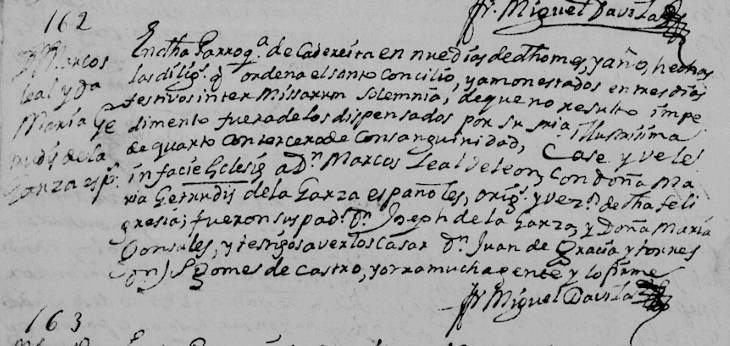 fr. Miguel Davila
162
Dn Marcos
Leal y Da
Maria Ge
rudis de la
Garza espes.
En dha Parroqa. de Cadereita en nueve dias de dho mes, y año, hechas
las dilígs. q ordena el santo Concilio, y amonestados en tres dias
festivos inter Missarum Solemnia, de que no resulto impe
dimento fuera de los dispensados por su sria Illustrisima
de quarto con tercero de Consanguinidad, Case y vele
in facie Eclesię a Dn. Marcos Leal de Leon, Con doña Ma
ria Getrudis de la Garza españoles, origs. y vezs. de dha feli
gresia; fueron sus pads. Dn. Joseph de la Garza, y Doña Maria
Gonsales, y testigos a verlos Casar Dn. Juan de Gracia y torres
Dn J. Gomes de Castro, y otra mucha gente y lo firme
fr. Miguel Davila
163